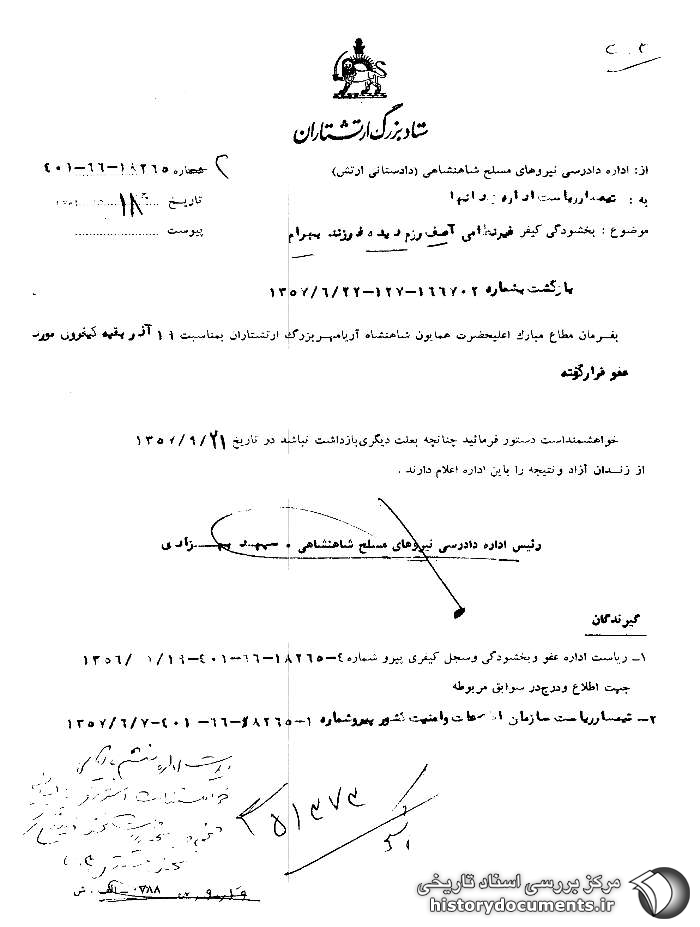 ستاد بزرگ ارتشتاران
از: اداره دادرسی نیروهای مسلح شاهنشاهی (دادستانی ارتش)
شماره ۱۸۲۶۵-۶۶-۴۰۱
به : تیمسار ریاست اداره زندانها
تاریخ ۱۸
موضوع : بخشودگی کیفر غیرنظامی آصف رزم دیده فرزند بهرام
پیوست
بازگشت بشماره ۱۶۶۷۰۲-۱۲۷-۱۳۵۷/۶/۲۲
بفرمان مطاع مبارک اعلیحضرت همایون شاهنشاه آریامهر بزرگ ارتشتاران بمناسبت ۱۹ آذر بقیه کیفرش مورد
عفو قرار گرفته
خواهشمند است دستور فرمائید چنانچه بعلت دیگری بازداشت نباشد در تاریخ ۱۳۵۷/۹/۲۱
از زندان آزاد و نتیجه را باین اداره اعلام دارند .
رئیس اداره دادرسی نیروهای مسلح شاهنشاهی . سپهبد بهزادی
گیرندگان
۱ـ ریاست اداره عفو وبخشودگی وسجل کیفری پیرو شماره ۴-۱۸۲۶۵-۶۶-۴۰۱-
جهت اطلاع ودرج در سوابق مربوطه
۲- تیمسار ریاست سازمان اطلاعات وامنیت کشور پیروشماره ۱-۱۸۲۶۵-۶۶-۴۰۱-۱۳۵۷/۶/۷
۲۵۱۴۷۴
مرکز بررسی اسناد تاریخی
historydocuments.ir